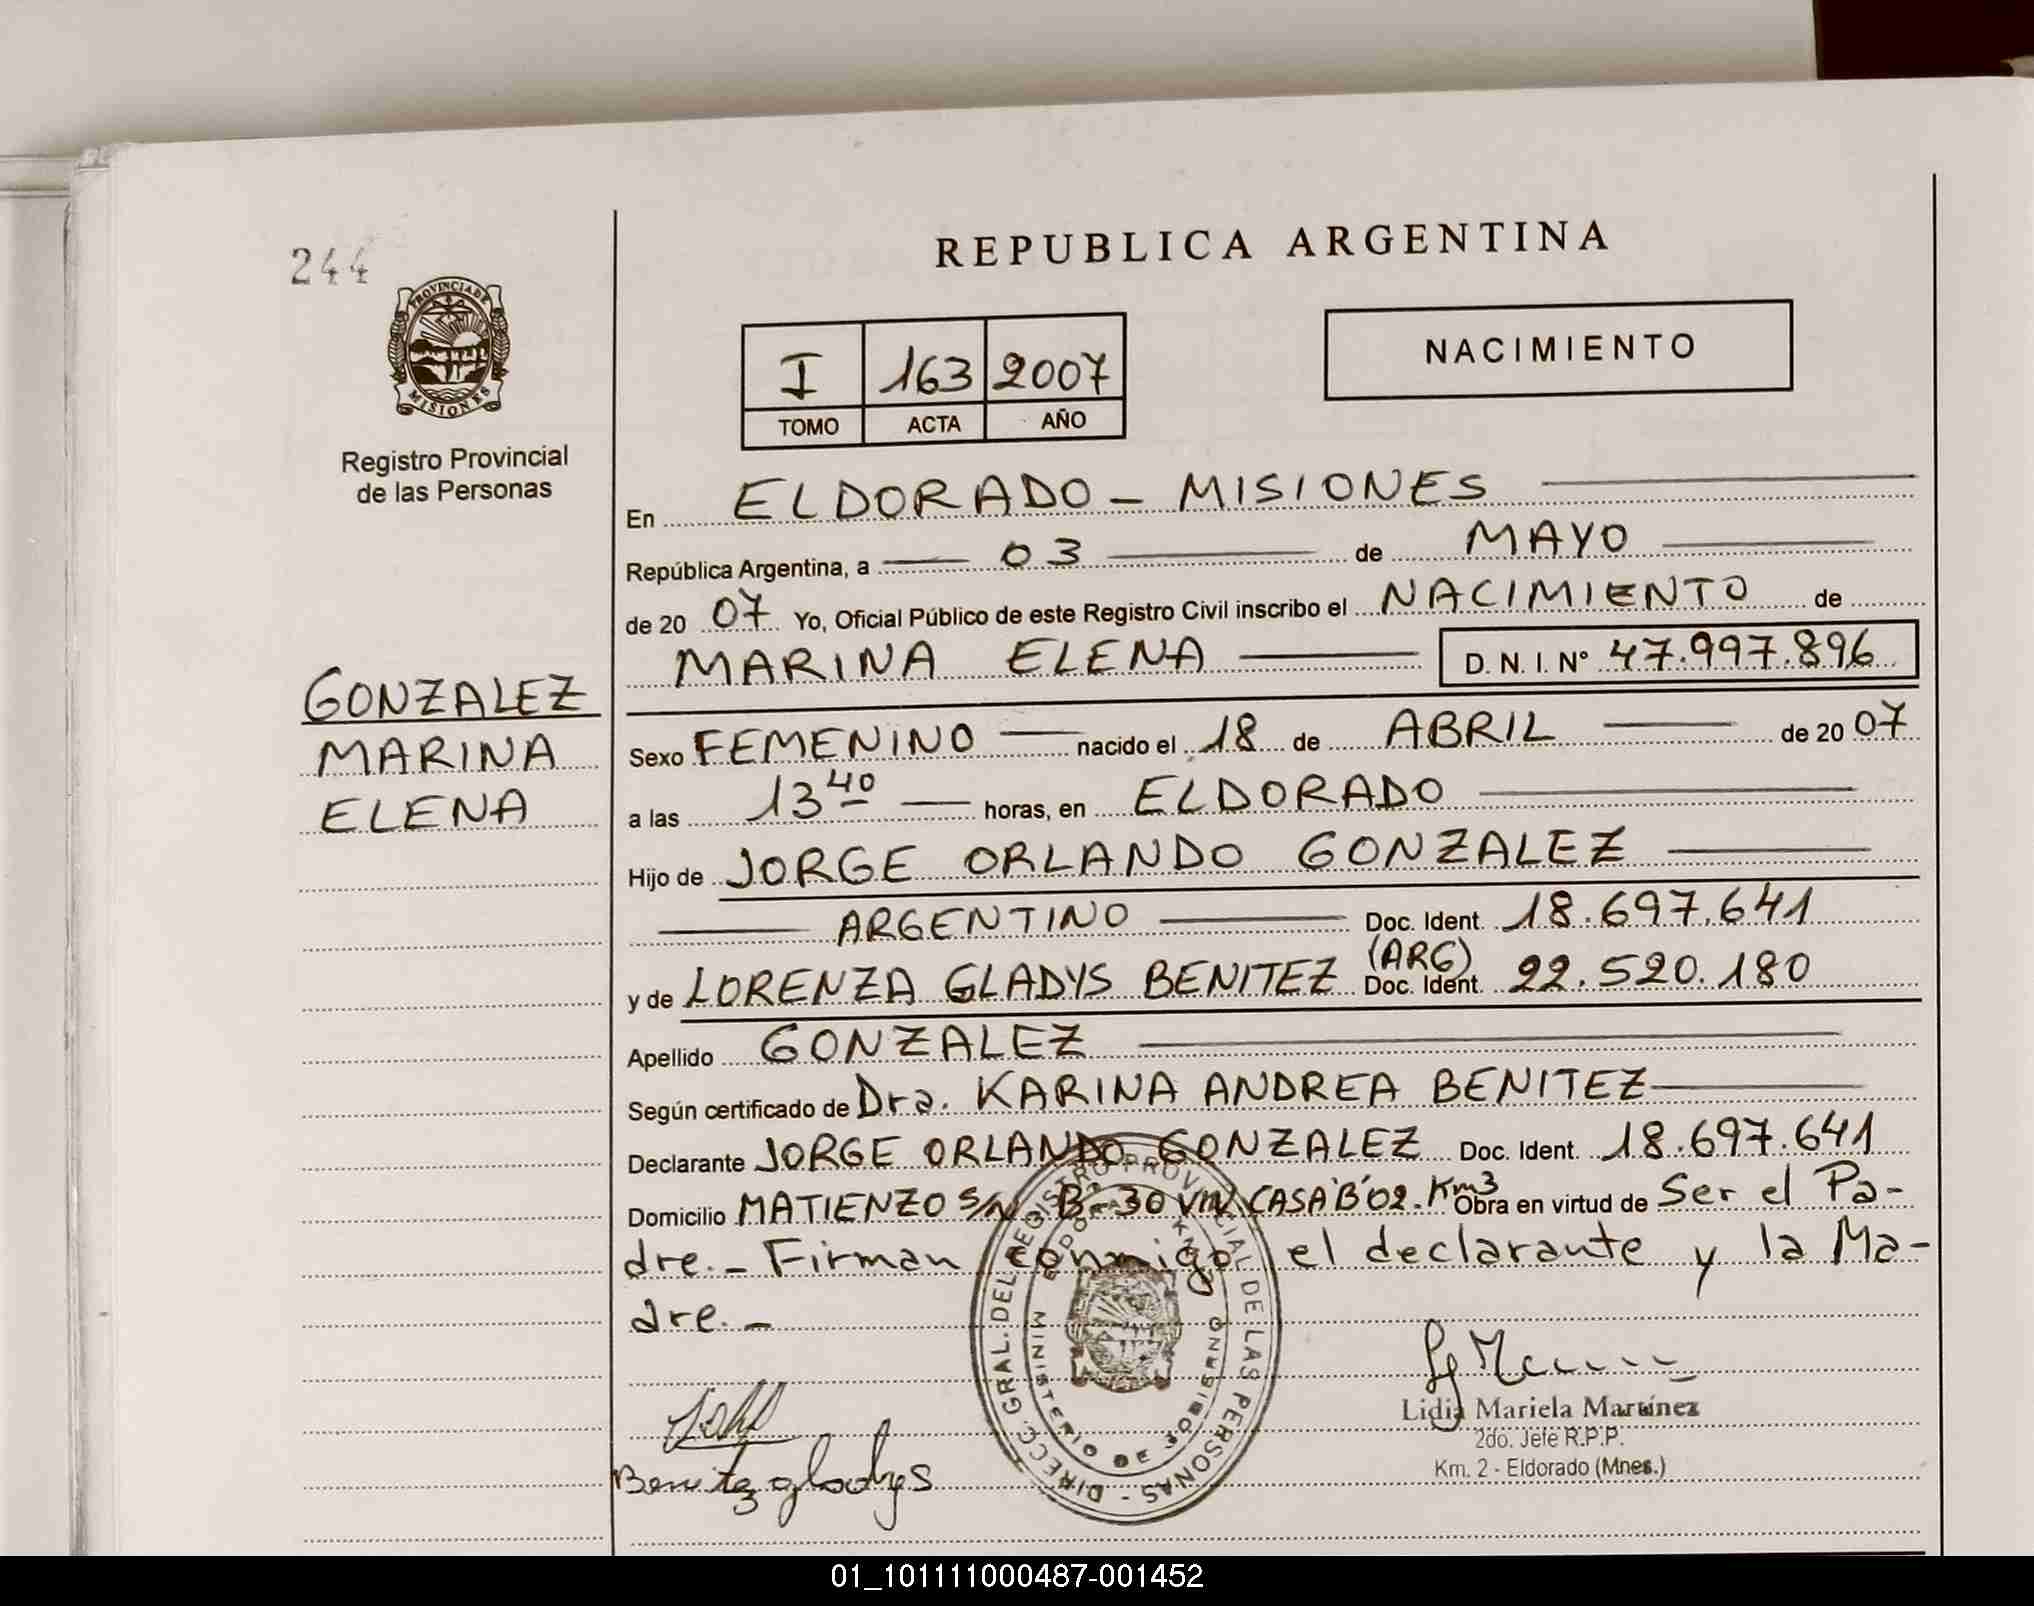 REPUBLICA ARGENTINA
244
PROVINCIA DE MISIONES
Registro Provincial
de las Personas
I 163 2007
TOMO ACTA AÑO
NACIMIENTO
En ELDORADO - MISIONES
República Argentina, a 03 de MAYO
de 20 07 Yo, Oficial Público de este Registro Civil inscribo el NACIMIENTO de
MARINA ELENA D.N.I. Nº 47.997.896
GONZALEZ
MARINA
ELENA
Sexo FEMENINO nacido el 18 de ABRIL de 20 07
a las 13 40 horas, en ELDORADO
Hijo de JORGE ORLANDO GONZALEZ
ARGENTINO Doc. Ident. 18.697.641
y de LORENZA GLADYS BENITEZ (ARG) Doc. Ident. 22.520.180
Apellido GONZALEZ
Según certificado de Dra. KARINA ANDREA BENITEZ
Declarante JORGE ORLANDO GONZALEZ Doc. Ident. 18.697.641
Domicilio MATIENZO S/N. Bº 30 VIV. CASA "B" 02. Km3 Obra en virtud de Ser el Pa-
dre.- Firman conmigo el declarante y la Ma-
dre.-
DIRECC. GRAL. DEL REGISTRO PROVINCIAL DE LAS PERSONAS -
MINISTERIO DE GOBIERNO
Benitez gladys
Lidia Mariela Martínez
2do. Jefe R.P.P.
Km. 2 - Eldorado (Mnes.)
01_101111000487-001452